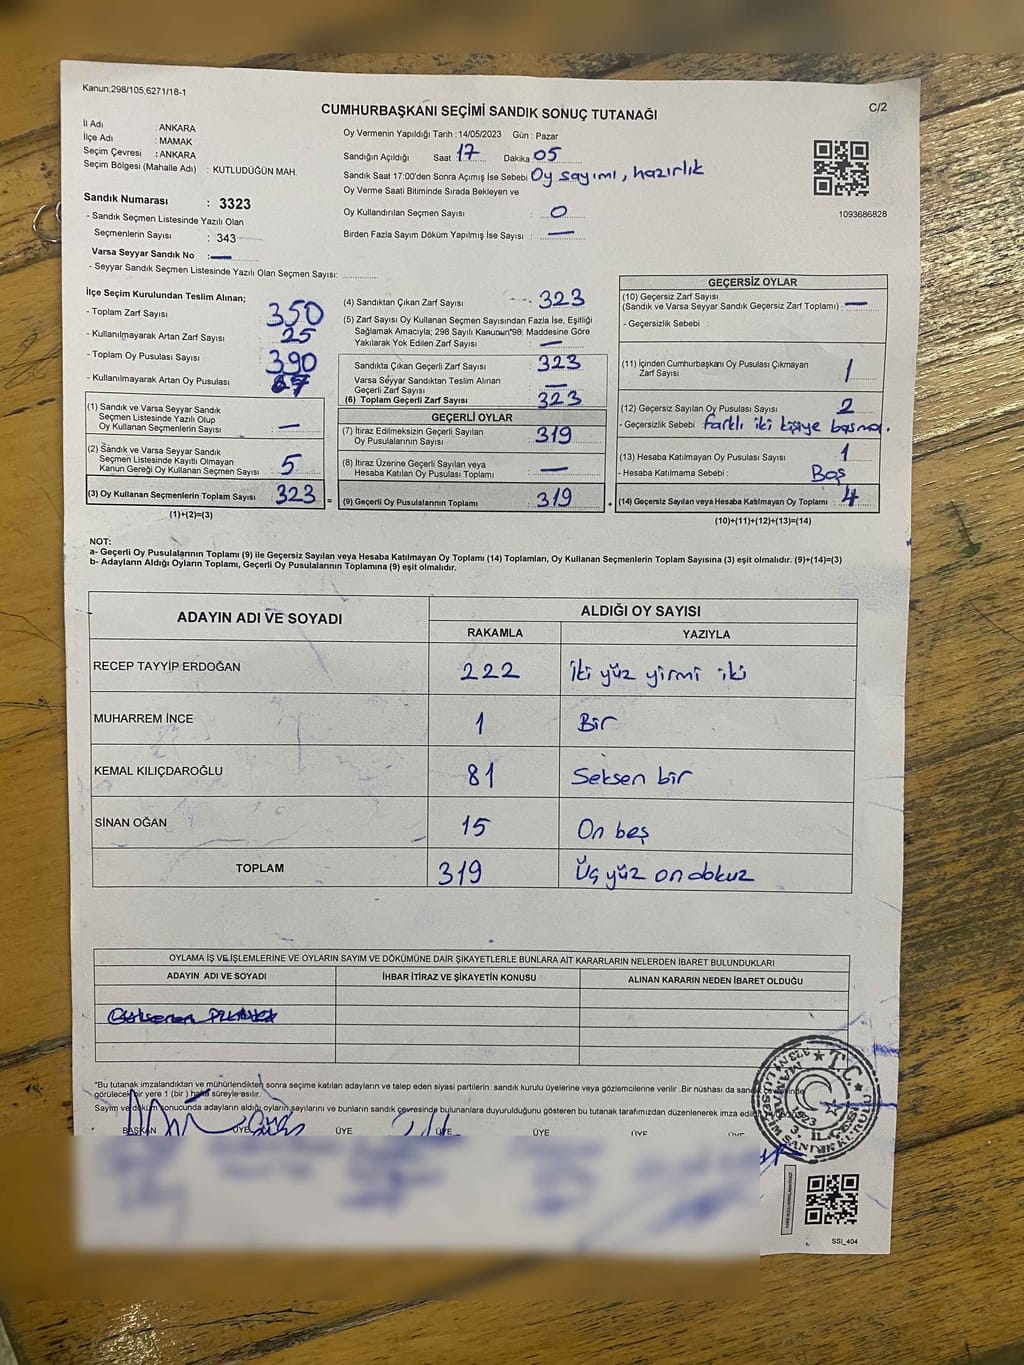 Kanun:298/105,6271/18-1
C/2
CUMHURBAŞKANI SEÇİMİ SANDIK SONUÇ TUTANAĞI
İl Adı : ANKARA
İlçe Adı : MAMAK
Seçim Çevresi : ANKARA
Seçim Bölgesi (Mahalle Adı) : KUTLUDÜĞÜN MAH.
Sandık Numarası : 3323
- Sandık Seçmen Listesinde Yazılı Olan
Seçmenlerin Sayısı : 343
Varsa Seyyar Sandık No :—
- Seyyar Sandık Seçmen Listesinde Yazılı Olan Seçmen Sayısı:
Oy Vermenin Yapıldığı Tarih :14/05/2023 Gün : Pazar
Sandığın Açıldığı Saat 17 Dakika 05
Sandık Saat 17:00'den Sonra Açımış İse Sebebi Oy sayımı, hazırlık
Oy Verme Saati Bitiminde Sırada Bekleyen ve
Oy Kullandırılan Seçmen Sayısı : 0
Birden Fazla Sayım Döküm Yapılmış İse Sayısı : —
1093686828
İlçe Seçim Kurulundan Teslim Alınan;
- Toplam Zarf Sayısı : 350
- Kullanılmayarak Artan Zarf Sayısı : 25
- Toplam Oy Pusulası Sayısı : 390
- Kullanılmayarak Artan Oy Pusulası :
(1) Sandık ve Varsa Seyyar Sandık
Seçmen Listesinde Yazılı Olup
Oy Kullanan Seçmenlerin Sayısı : —
(2) Sandık ve Varsa Seyyar Sandık
Seçmen Listesinde Kayıtlı Olmayan
Kanun Gereği Oy Kullanan Seçmen Sayısı : 5
(3) Oy Kullanan Seçmenlerin Toplam Sayısı : 323 =
(1)+(2)=(3)
(4) Sandıktan Çıkan Zarf Sayısı 323
(5) Zarf Sayısı Oy Kullanan Seçmen Sayısından Fazla İse, Eşitliği
Sağlamak Amacıyla; 298 Sayılı Kanunun 98. Maddesine Göre
Yakılarak Yok Edilen Zarf Sayısı : —
Sandıkta Çıkan Geçerli Zarf Sayısı : 323
Varsa Seyyar Sandıktan Teslim Alınan
Geçerli Zarf Sayısı : —
(6) Toplam Geçerli Zarf Sayısı : 323
GEÇERLİ OYLAR
(7) İtiraz Edilmeksizin Geçerli Sayılan
Oy Pusulalarının Sayısı : 319
(8) İtiraz Üzerine Geçerli Sayılan veya
Hesaba Katılan Oy Pusulası Toplamı : —
(9) Geçerli Oy Pusulalarının Toplamı : 319 +
GEÇERSİZ OYLAR
(10) Geçersiz Zarf Sayısı
(Sandık ve Varsa Seyyar Sandık Geçersiz Zarf Toplamı) : —
- Geçersizlik Sebebi :
(11) İçinden Cumhurbaşkanı Oy Pusulası Çıkmayan
Zarf Sayısı : 1
(12) Geçersiz Sayılan Oy Pusulası Sayısı : 2
- Geçersizlik Sebebi Farklı iki kişiye basma.
(13) Hesaba Katılmayan Oy Pusulası Sayısı : 1
- Hesaba Katılmama Sebebi : Boş
(14) Geçersiz Sayılan veya Hesaba Katılmayan Oy Toplamı : 4
(10)+(11)+(12)+(13)=(14)
NOT:
a- Geçerli Oy Pusulalarının Toplamı (9) ile Geçersiz Sayılan veya Hesaba Katılmayan Oy Toplamı (14) Toplamları, Oy Kullanan Seçmenlerin Toplam Sayısına (3) eşit olmalıdır. (9)+(14)=(3)
b- Adayların Aldığı Oyların Toplamı, Geçerli Oy Pusulalarının Toplamına (9) eşit olmalıdır.
ADAYIN ADI VE SOYADI
ALDIĞI OY SAYISI
RAKAMLA YAZIYLA
RECEP TAYYİP ERDOĞAN 222 İki yüz yirmi iki
MUHARREM İNCE 1 Bir
KEMAL KILIÇDAROĞLU 81 Seksen bir
SİNAN OĞAN 15 On beş
TOPLAM 319 Üç yüz on dokuz
OYLAMA İŞ VE İŞLEMLERİNE VE OYLARIN SAYIM VE DÖKÜMÜNE DAİR ŞİKAYETLERLE BUNLARA AİT KARARLARIN NELERDEN İBARET BULUNDUKLARI
ADAYIN ADI VE SOYADI İHBAR İTİRAZ VE ŞİKAYETİN KONUSU ALINAN KARARIN NEDEN İBARET OLDUĞU
*Bu tutanak imzalandıktan ve mühürlendikten sonra seçime katılan adayların ve talep eden siyasi partilerin sandık kurulu üyelerine veya gözlemcilerine verilir .Bir nüshası da
görülecek bir yere 1 (bir) hafta süreyle asılır.
Sayım ve döküm sonucunda adayların aldığı oyların sayılarını ve bunların sandık çevresinde bulunanlara duyurulduğunu gösteren bu tutanak tarafımızdan düzenlenerek imza
BAŞKAN ÜYE ÜYE ÜYE ÜYE ÜYE ÜYE
T.C.
SSI_404